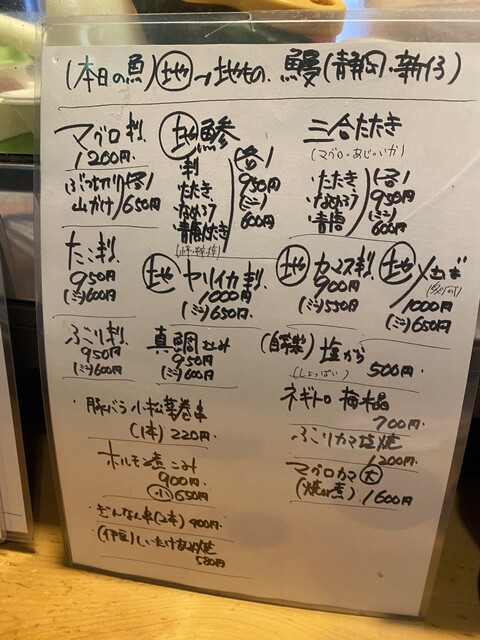 (本日の魚) 地→地もの. 鰻(静岡・新仔)
マグロ刺.
1200円.
ぶつ切り
山かけ
(各)
650円
地 鯵
刺
・たたき
・なめろう
・青唐たたき
(各)
950円
(ミニ)
600円
三合たたき
(マグロ・あじ・いか)
・たたき
・なめろう
・青唐
(各)
950円
(ミニ)
600円
たこ刺.
950円
(ミニ)600円
地 ヤリイカ刺.
1000円
(ミニ)650円.
地 カマス刺.
900円
(ミニ)550円
地
1000円
(ミニ)650円
ぶり刺.
950円
(ミニ)600円
真鯛
950円
(ミニ)600円
(自家製) 塩から
(しょっぱい)
500円
豚バラ小松菜巻串
(1本) 220円.
ネギトロ 梅水晶
700円
ホルモン煮こみ
900円
小 650円
ぶりカマ塩焼
1200円
マグロカマ 大
(焼or煮) 1600円
ぎんなん串(2本) 400円.
(伊豆)しいたけ
580円